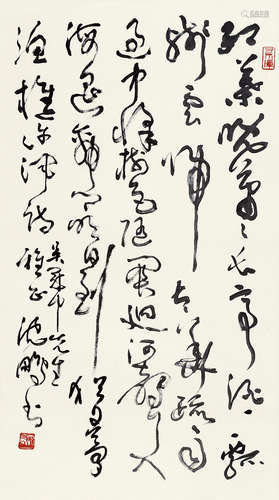 红叶晚萧〻长亭酒一瓢
残云归太华疏雨
过中条树色随关迥河声入
海遥帝乡明日到犹自梦
渔樵 许浑诗
先生
雅正 沈鹏书